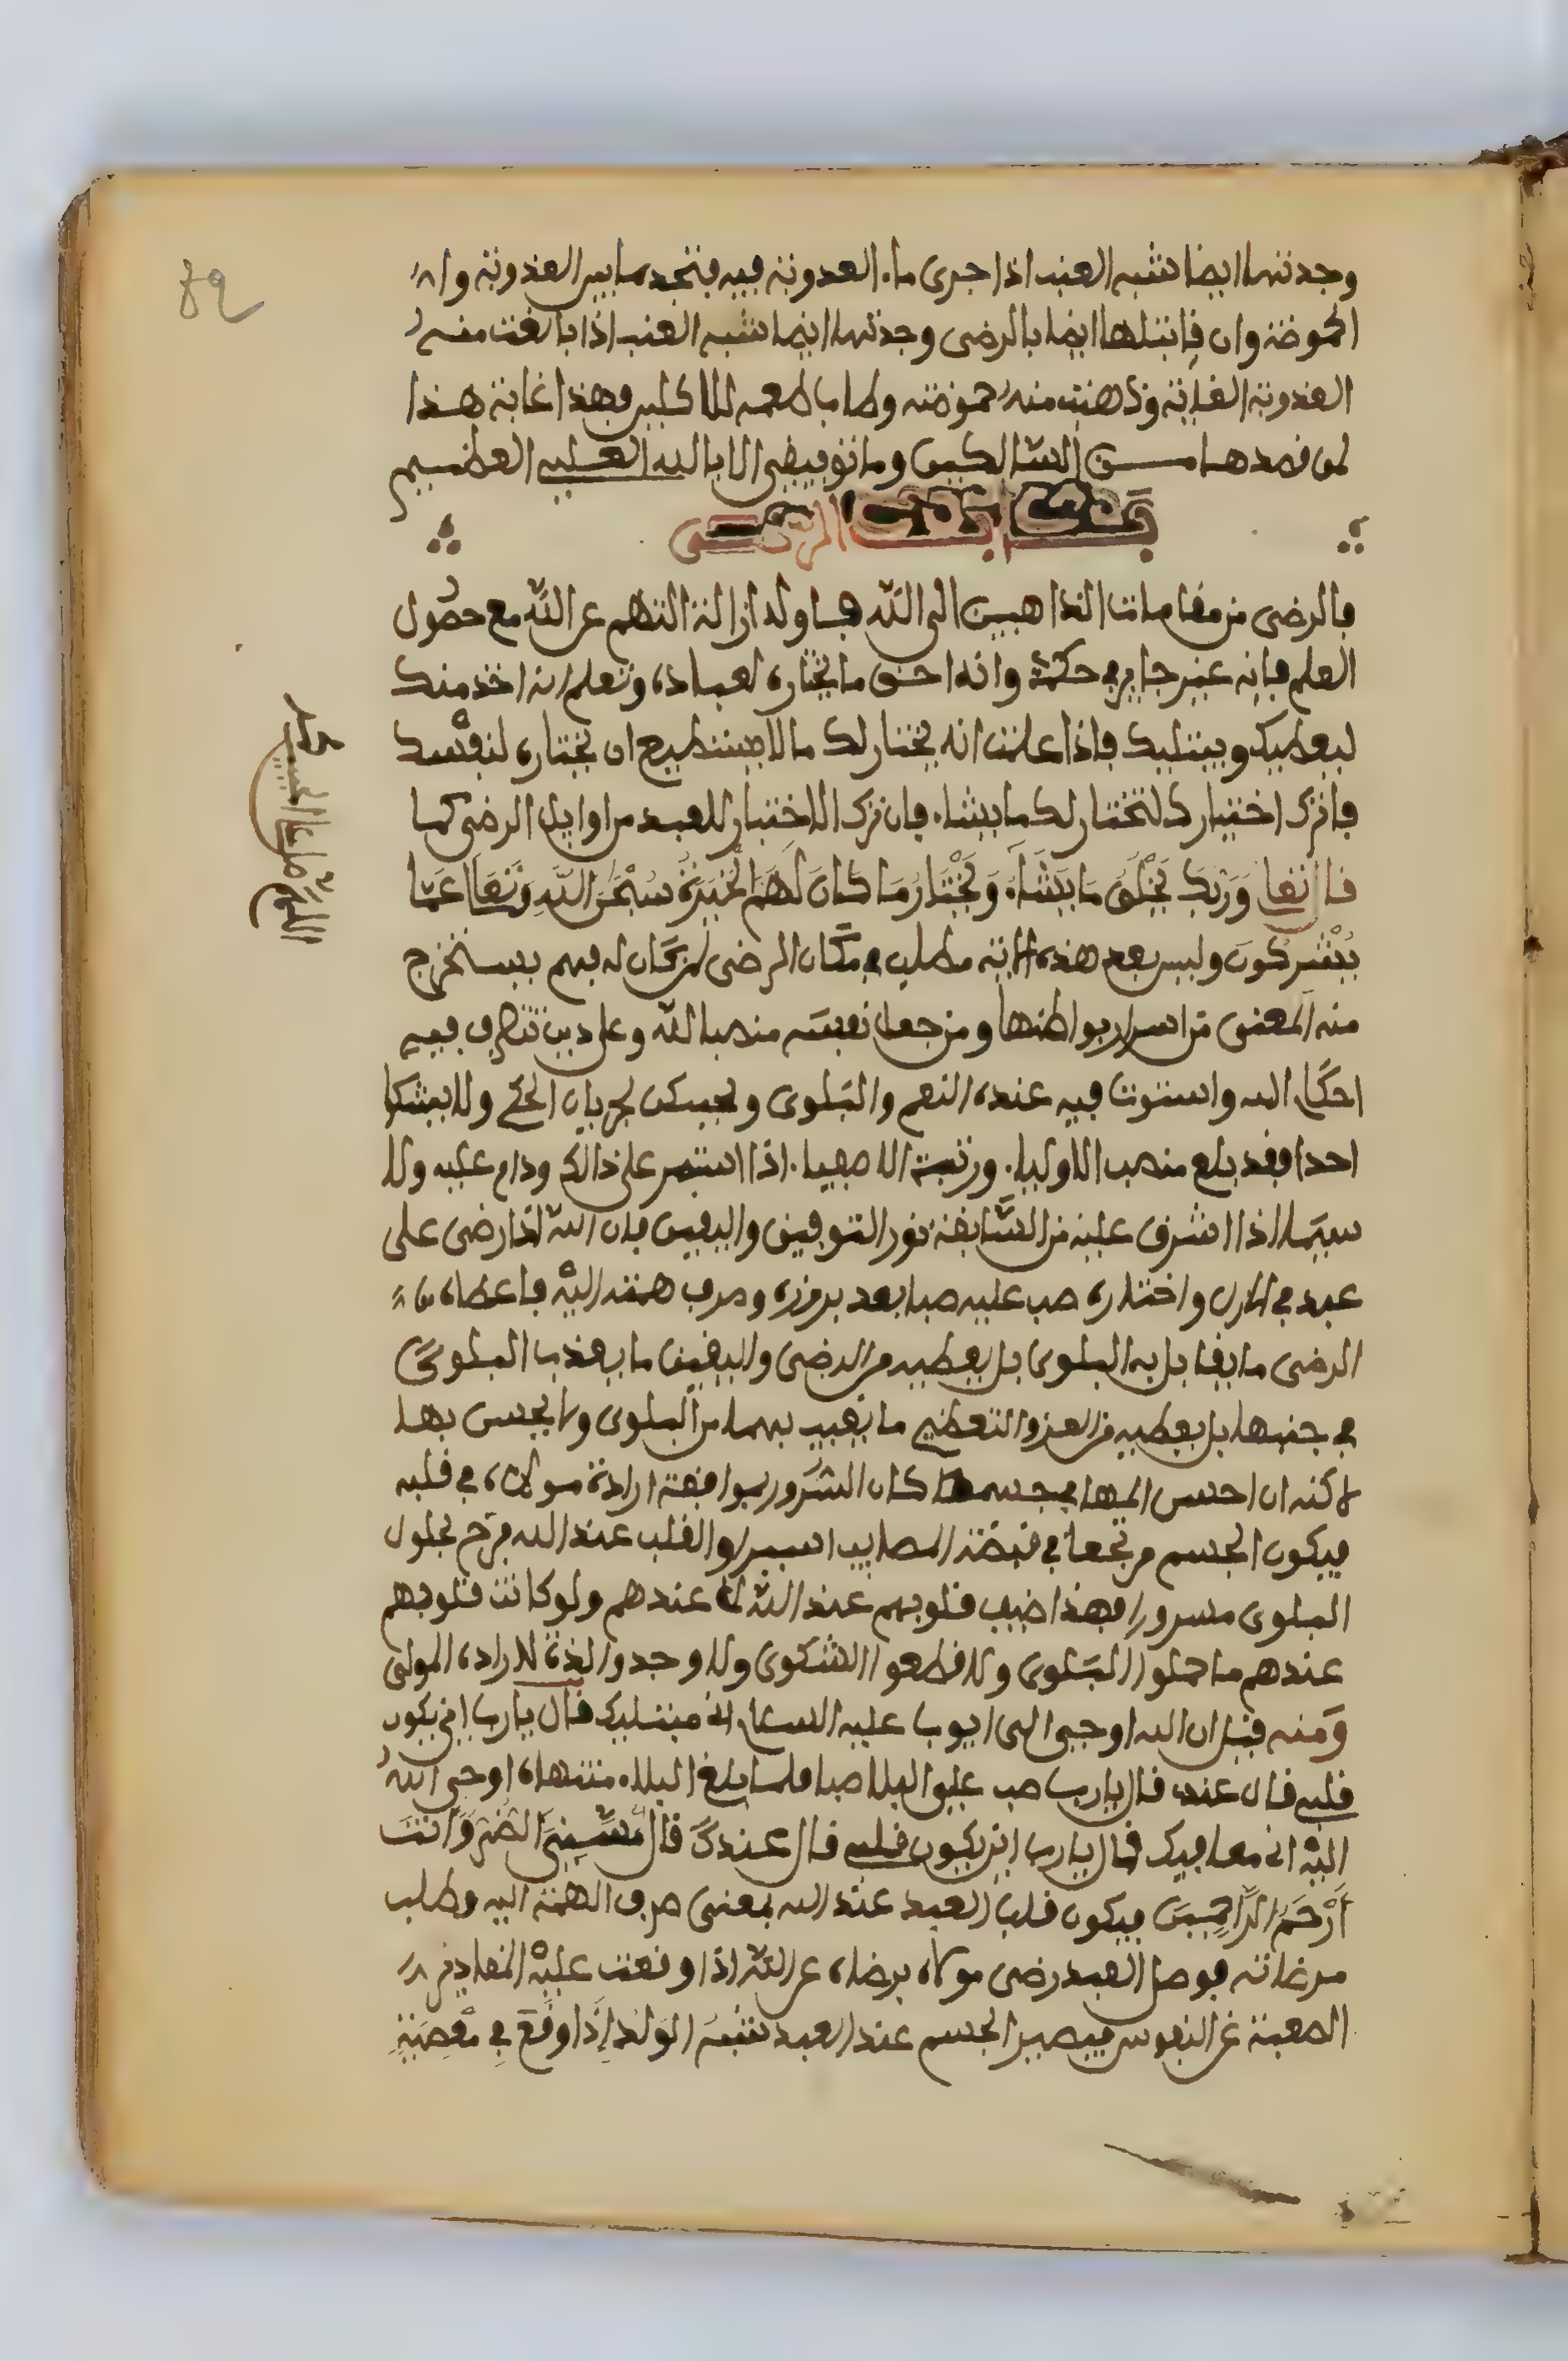 وجدتها ايضا شبه العنب اذا جرى ماء العذوبة فيه فتجد ما بين العذوبة وا
لحموضة وان قابلتها ايضا بالرضى وجدتها ايضا شبه العنب اذا بالغت منه
العذوبة الغاية وذهبت منه حموضته وطاب طعمه للاكلين فهذا غاية هذا
لمن قصدها من السالكين وما توفيقي الا بالله العلي العظيم
الرضى
فالرضى من مقامات الذاهبين الى الله فاوله ازالة التهم عن الله مع حصول
العلم فانه غير جاير في حكمه وانه احق ما يختاره لعباده وتعلم انه اخذ منك
ليعطيك ويبتليك فاذا علمت انه يختار لك ما لا تستطيع ان تختاره لنفسك
فاترك اختيارك لتختار لك ما يشاء فان ترك الاختيار للعبد من اوايل الرضى كما
قال تعا وَرَبُّكَ يَخْلُقُ مَا يَشَاءُ وَيَخْتَارُ مَا كَانَ لَهُمُ الْخِيَرَةُ سُبْحَٰنَ اللَّهِ وَتَعَالَى عَمَّا
يُشْرِكُونَ وليس بعد هذه الاية مطلب في مكان الرضى لمن كان له فهم يستخرج
منه المعنى من اسرار بواطنها ومن جعل نفسه منصبا لله وعلم دين تتصرف فيه
احكام الله واستوت فيه عنده النعم والبلوى ويسكن لجريان الحكم ولا يشكوا
احدا فقد بلغ منصب الاولياء ورتبة الاصفياء اذا استمر على ذالك ودام عليه ولا
سيما اذا اشرق عليه من السابقة نور التوفيق واليقين فان الله اذا رضى على
عبد في الازل واختاره صب عليه صبا بعد بروزه وصرف همته اليه فاعطاه من
الرضى ما يقابل به البلوى بل يعطيه من الرضى واليقين ما يعذب البلوى
في جنبها بل يعطيه من العز والتعظيم ما يغيب بهما من البلوى ولا يحس بها
لاكنه ان احس المها في جسمه كان السرور بموافقة ارادة مولاه في قلبه
فيكون الجسم مرتجعا في قبضة المصايب اسيرا والقلب عند الله فرح لحلول
البلوى مسرورا فهذا ضيف قلوبهم عند الله لا عندهم ولو كانت قلوبهم
عندهم ما حملوا البلوى ولا قطعوا الشكوى ولا وجدوا لذة لاراده المولى
ومنه قيل ان الله اوحى الى ايوب عليه السلام اني مبتليك قال يا رب اين يكون
قلبي قال عندي قال يا رب صب علي البلا صبا فلما بلغ البلاء منتهاه اوحى الله
اليه اني معافيك قال يا رب اين يكون قلبي قال عندك قال مَسَّنِيَ الضُّرُّ وَأَنتَ
أَرْحَمُ الرَّاحِمِينَ فيكون قلب العبد عند الله بمعنى صرف الهمة اليه وطلب
مرضاته فوصل العبد رضى مولاه برضاه عن الله اذا وقعت عليه المقادير ا
لصعبة عن النفوس فيصير الجسم عند العبد شبه الوَلَد إِذَا وَقَعَ فِي مَعْصِيَةٍ
اللهم صل على السيد محمد